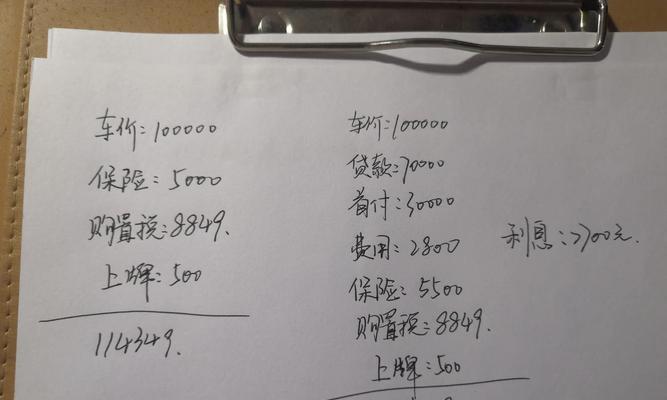 车价：100000
保险：5000
购置税：8849.
上牌：500
114349.
车价：100000
贷款：70000
首付：30000
费用：2800
利息：2700元.
保险：5500
购置税：8849.
上牌：500